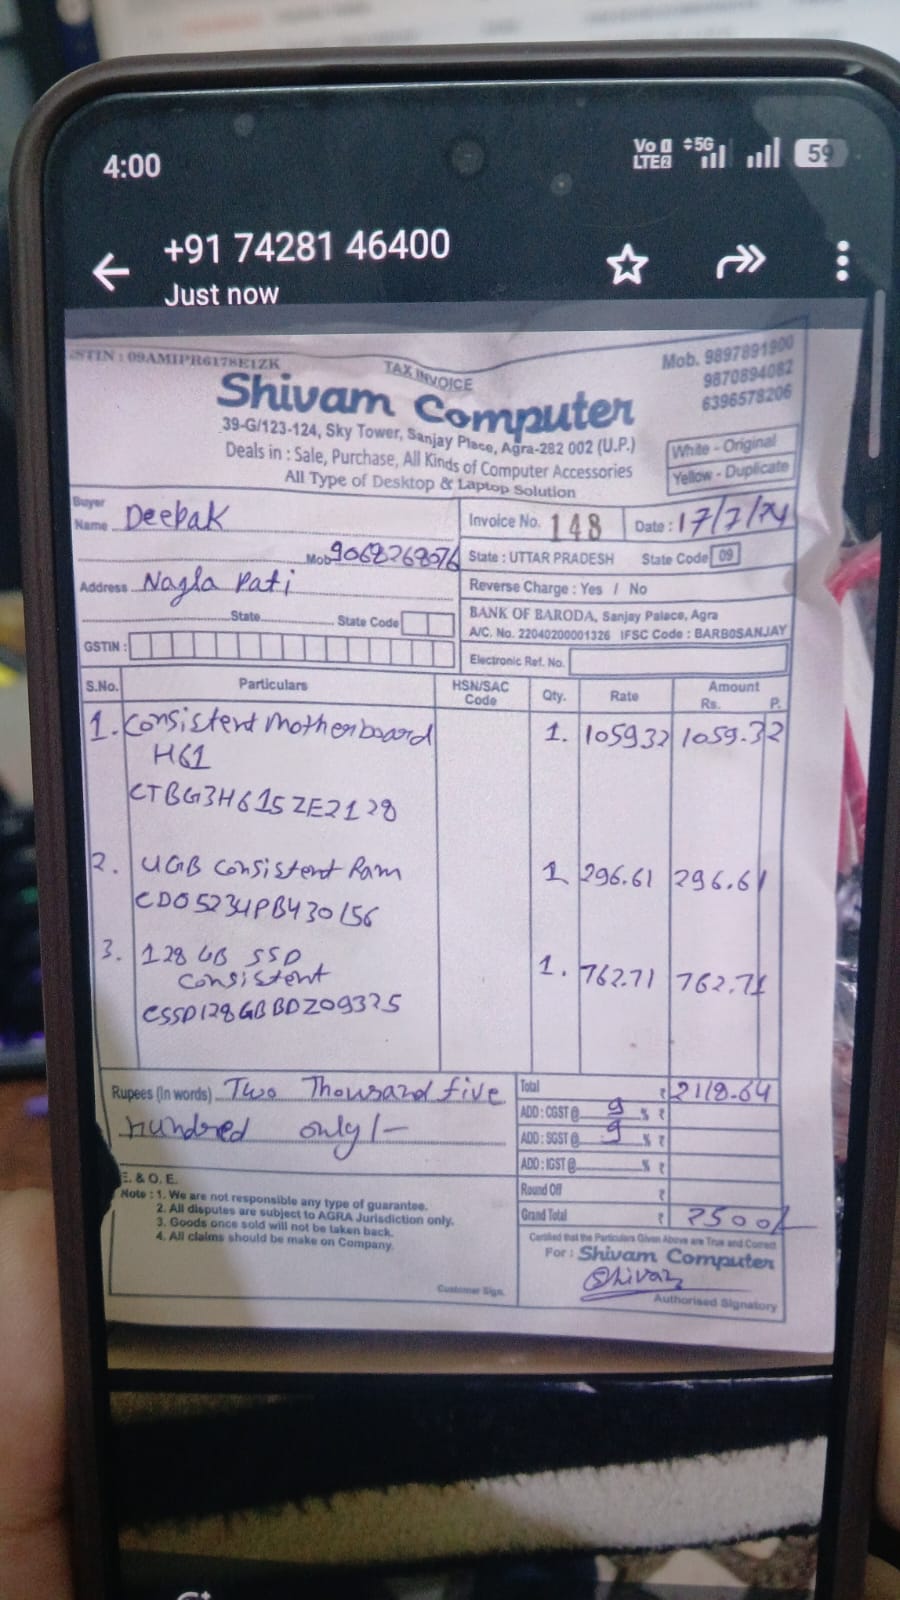 4:00
Vo LTE2 5G 59
+91 74281 46400
Just now
GSTIN : 09AMIPR6178E1ZK
TAX INVOICE
Mob. 9897891900
9870894082
6396578206
Shivam Computer
39-G/123-124, Sky Tower, Sanjay Place, Agra-282 002 (U.P.)
Deals in : Sale, Purchase, All Kinds of Computer Accessories
All Type of Desktop & Laptop Solution
White - Original
Yellow - Duplicate
Buyer
Name Deepak
Invoice No. 148 Date : 17/7/24
Mob 9068268076
State : UTTAR PRADESH State Code 09
Address Nagla Pati
Reverse Charge : Yes / No
State State Code
BANK OF BARODA, Sanjay Palace, Agra
A/C. No. 22040200001326 IFSC Code : BARB0SANJAY
GSTIN :
Electronic Ref. No.
S.No. Particulars HSN/SAC Code Qty. Rate Amount Rs. P.
1. Consistent Motherboard 1. 1059.32 1059.32
H61
CTBG3H615ZE2128
2. 4GB Consistent Ram 1 296.61 296.61
CD05234PB430156
3. 128 GB SSD 1. 762.71 762.71
Consistent
CSSD128GBBDZ09325
Rupees (in words) Two Thousand five
hundred only/-
Total ₹ 2118.64
ADD : CGST @ 9 % ₹
ADD : SGST @ 9 % ₹
ADD : IGST @ % ₹
Round Off ₹
Grand Total ₹ 2500/-
E. & O. E.
Note : 1. We are not responsible any type of guarantee.
2. All disputes are subject to AGRA Jurisdiction only.
3. Goods once sold will not be taken back.
4. All claims should be make on Company.
Certified that the Particulars Given Above are True and Correct
For : Shivam Computer
Shivam
Customer Sign.
Authorised Signatory